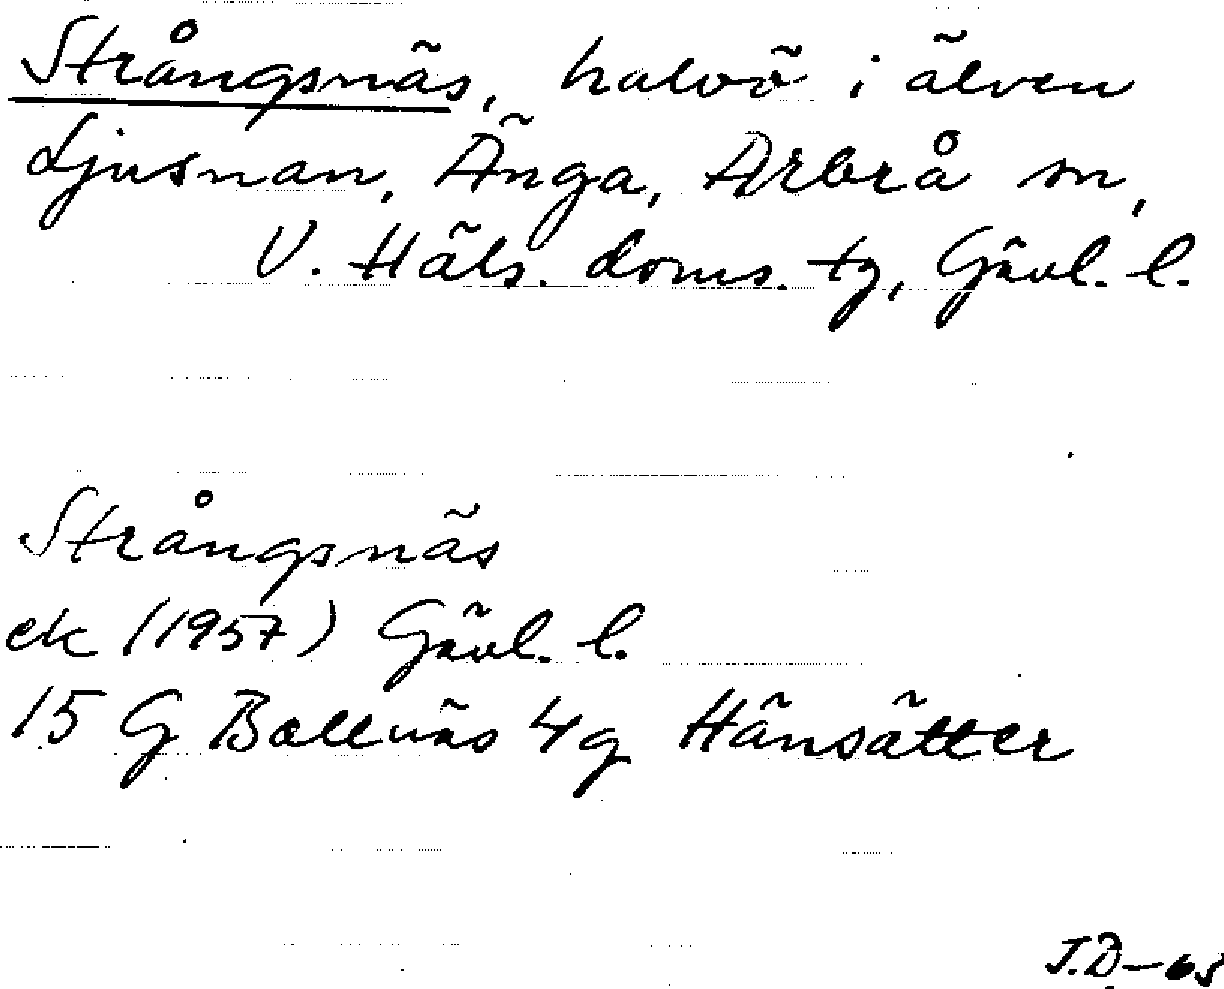 Strångsnäs, halvö i älven
Ljusnan, Änga, Arbrå sn,
V. Häls. doms. tg, Gävl. l.
Strångsnäs
ek (1957) Gävl. l.
15 G Bollnäs 4g Hänsätter
J.D-65